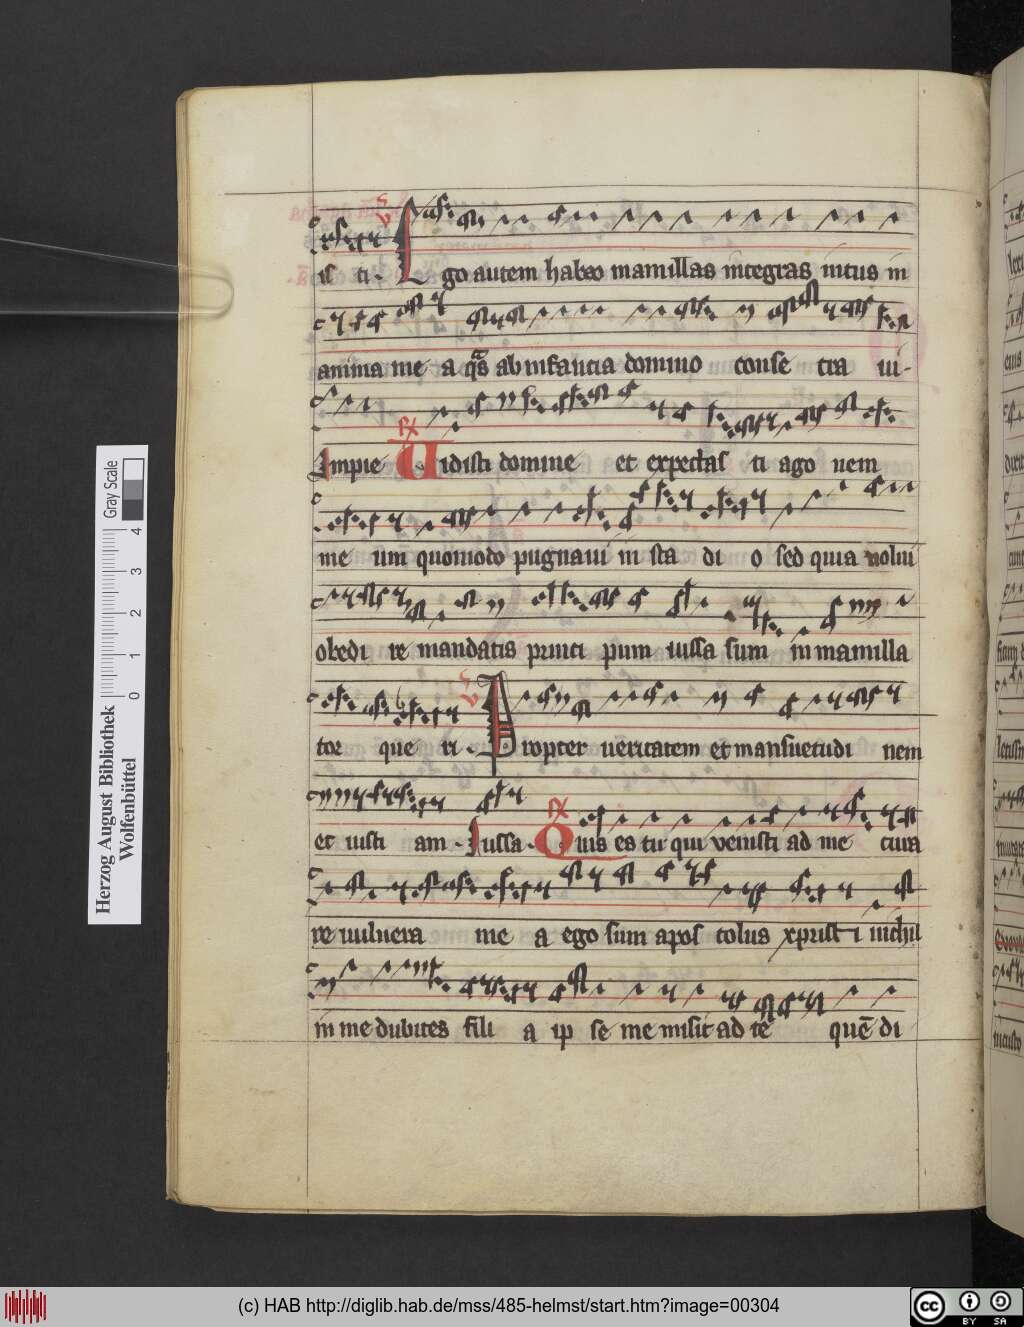 is ti. Ego autem habeo mamillas integras intus in
anima me a quas ab infantia domino conse cra ui.
Impie Vidisti domine et expectas ti ago nem
me um quomodo pugnaui in sta di o sed quia nolui
obedi re mandatis princi pum iussa sum in mamilla
tor que ri. Propter ueritatem et mansuetudi nem
et iusti am. Iussa. Quis es tu qui venisti ad me cura
re uulnera me a ego sum apos tolus xprist i nichil
in me dubites fili a ip se me misit ad te quē di
Gray Scale
0 1 2 3 4
Herzog August Bibliothek
Wolfenbüttel
(c) HAB http://diglib.hab.de/mss/485-helmst/start.htm?image=00304
cc BY SA